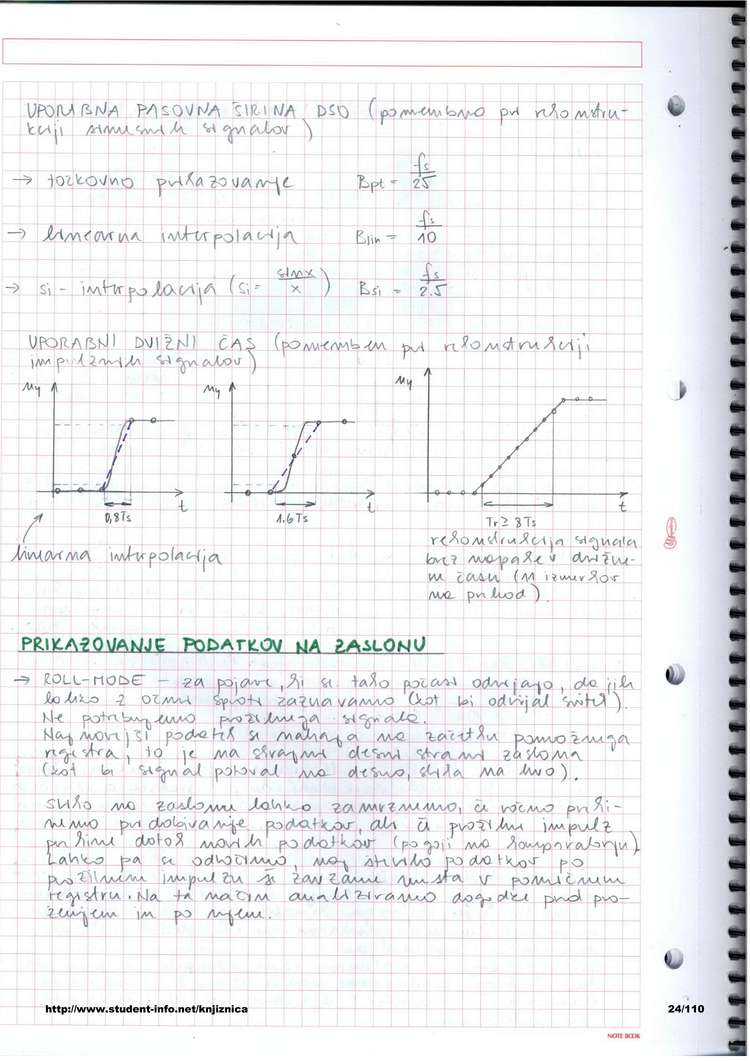 UPORABNA PASOVNA ŠIRINA DSO (pomembno pri rekonstru-
kciji sinusnih signalov)
→ točkovno prikazovanje Bpt = fs/25
→ linearna interpolacija Blin = fs/10
→ si - interpolacija (si = sinx/x) Bsi = fs/2.5
UPORABNI DVIŽNI ČAS (pomemben pri rekonstrukciji
impulznih signalov)
uy uy uy
t t t
0,8Ts 1.6Ts Tr ≥ 8Ts
linearna interpolacija
rekonstrukcija signala
brez napake v dvižne-
m času (11 izmerkov
na prehod).
PRIKAZOVANJE PODATKOV NA ZASLONU
→ ROLL-MODE – za pojave, ki se tako počasi odvijajo, da jih
lahko z očmi sproti zaznavamo (kot bi odvijal svitek).
Ne potrebujemo prožilnega signala.
Najnovejši podatek se nahaja na začetku pomožnega
registra, to je na skrajni desni strani zaslona
(kot bi signal potoval na desno, slika na levo).
Sliko na zaslonu lahko zamrznemo, če ročno preki-
nemo pridobivanje podatkov, ali če prožilni impulz
prekine dotok novih podatkov (pogoji na komparatorju).
Lahko pa se odločimo, naj število podatkov po
prožilnem impulzu še zavzame mesta v pomičnem
registru. Na ta način analiziramo dogodke pred pro-
ženjem in po njem.
http://www.student-info.net/knjiznica
24/110
NOTE BOOK